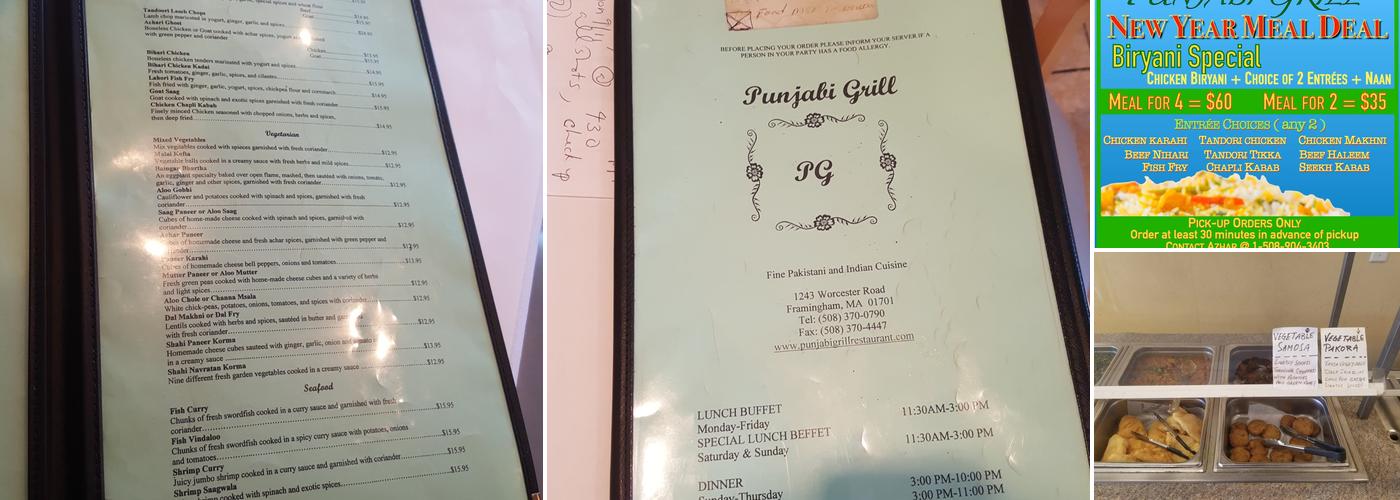 Tandoori Lamb Chops
Lamb chop marinated in yogurt, ginger, garlic and spices
Achari Ghost
Boneless Chicken or Goat cooked with achar spices, yogurt
with green pepper and coriander
Bihari Chicken
Boneless chicken tenders marinated with yogurt and spices
Bihari Chicken Kadai
Fresh tomatoes, ginger, garlic, spices, and cilantro $14.95
Lahori Fish Fry
Fish fried with ginger, garlic, yogurt, spices, chickpea flour and cornstarch $15.95
Goat Saag
Goat cooked with spinach and exotic spices garnished with fresh coriander $14.95
Chicken Chapli Kabab $15.95
Finely minced Chicken seasoned with chopped onions, herbs and spices,
then deep fried $14.95
Vegetarian
Mixed Vegetables
Mix vegetables cooked with spieces garnished with fresh coriander $12.95
Malai Kofta
Vegetable balls cooked in a creamy sauce with fresh herbs and mild spices $12.95
Baingan Bhartha
An eggplant specialty baked over open flame, mashed, then sautéed with onions, tomato,
garlic, ginger and other spices, garnished with fresh coriander $12.95
Aloo Gobhi
Cauliflower and potatoes cooked with spices, garnished with fresh
coriander $12.95
Saag Paneer or Aloo Saag
Cubes of home-made cheese cooked with spinach and spices, garnished with fresh
coriander $12.95
Achar Paneer
Cubes of homemade cheese and fresh achar spices, garnished with green pepper and
coriander
Paneer Karahi
Cubes of homemade cheese bell peppers, onions and tomatoes $13.95
Mutter Paneer or Aloo Mutter
Fresh green peas cooked with home-made cheese cubes and a variety of herbs
and light spices $12.95
Aloo Chole or Channa Msala
White chick-peas, potatoes, onions, tomatoes, and spices with coriander $12.95
Dal Makhni or Dal Fry
Lentils cooked with herbs and spices, sautéed in butter and
with fresh coriander $12.95
Shahi Paneer Korma
Homemade cheese cubes sauteed with ginger, garlic, onion and tomato
in a creamy sauce $13.95
Shahi Navratan Korma
Nine different fresh garden vegetables cooked with spices $12.95
Seafood
Fish Curry
Chunks of fresh swordfish cooked in a curry sauce and garnished with fresh
coriander $15.95
Fish Vindaloo
Chunks of fresh swordfish cooked in a spicy curry sauce with potatoes, onions
and tomatoes $15.95
Shrimp Curry
Juicy jumbo shrimp cooked in a curry sauce and garnished with coriander $15.95
Shrimp Saagwala
shrimp cooked with spinach and exotic spices $15.95
BEFORE PLACING YOUR ORDER PLEASE INFORM YOUR SERVER IF A
PERSON IN YOUR PARTY HAS A FOOD ALLERGY.
Punjabi Grill
PG
Fine Pakistani and Indian Cuisine
1243 Worcester Road
Framingham, MA 01701
Tel: (508) 370-0790
Fax: (508) 370-4447
www.punjabigrillrestaurant.com
LUNCH BUFFET 11:30AM-3:00 PM
Monday-Friday
SPECIAL LUNCH BEFFET 11:30AM-3:00 PM
Saturday & Sunday
DINNER 3:00 PM-10:00 PM
Sunday-Thursday 3:00 PM-11:00 PM
PUNJABI GRILL
NEW YEAR MEAL DEAL
Biryani Special
CHICKEN BIRYANI + CHOICE OF 2 ENTRÉES + NAAN
MEAL FOR 4 = $60 MEAL FOR 2 = $35
ENTRÉE CHOICES ( any 2 )
CHICKEN KARAHI TANDORI CHICKEN CHICKEN MAKHNI
BEEF NIHARI TANDORI TIKKA BEEF HALEEM
FISH FRY CHAPLI KABAB SEEKH KABAB
PICK-UP ORDERS ONLY
Order at least 30 minutes in advance of pickup
CONTACT AZHAR @ 1-508-904-3603
VEGETABLE
SAMOSA
VEGETABLE
PAKORA